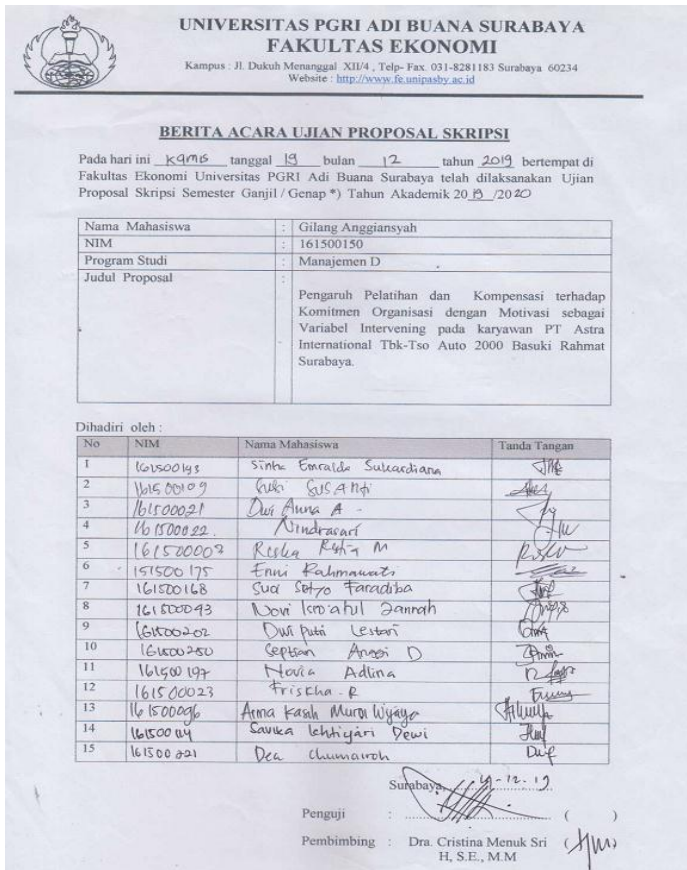 UNIVERSITAS PGRI ADI BUANA SURABAYA
FAKULTAS EKONOMI
Kampus : Jl. Dukuh Menanggal XII/4 , Telp- Fax. 031-8281183 Surabaya 60234
Website : http://www.fe.unipasby.ac.id
BERITA ACARA UJIAN PROPOSAL SKRIPSI
Pada hari ini Kamis tanggal 19 bulan 12 tahun 2019 bertempat di
Fakultas Ekonomi Universitas PGRI Adi Buana Surabaya telah dilaksanakan Ujian
Proposal Skripsi Semester Ganjil / Genap *) Tahun Akademik 20 19 /2020
Nama Mahasiswa : Gilang Anggiansyah
NIM : 161500150
Program Studi : Manajemen D
Judul Proposal :
Pengaruh Pelatihan dan Kompensasi terhadap
Komitmen Organisasi dengan Motivasi sebagai
Variabel Intervening pada karyawan PT Astra
International Tbk-Tso Auto 2000 Basuki Rahmat
Surabaya.
Dihadiri oleh :
No NIM Nama Mahasiswa Tanda Tangan
1 161500143 Sinta Emralda Sukardiana
2 161500109 Susanti
3 161500021 Dwi Anna A -
4 161500022. Nindrasari
5 Reska M
6 151500175 Enni Rahmawati
7 161500168 Suci Setyo Faradiba
8 161500093 Novi Isro'atul Jannah
9 161500202 Dwi putri Lestari
10 161500250 Septian Anggi D
11 161500197 Novia Adlina
12 161500023 Friskha . R
13 161500096 Anna Kasih Murni Wijaya
14 Savika Ikhtiyari Dewi
15 161500221 Dea chumairoh
Surabaya, 19-12-19
Penguji : ( )
Pembimbing : Dra. Cristina Menuk Sri ( )
H, S.E., M.M